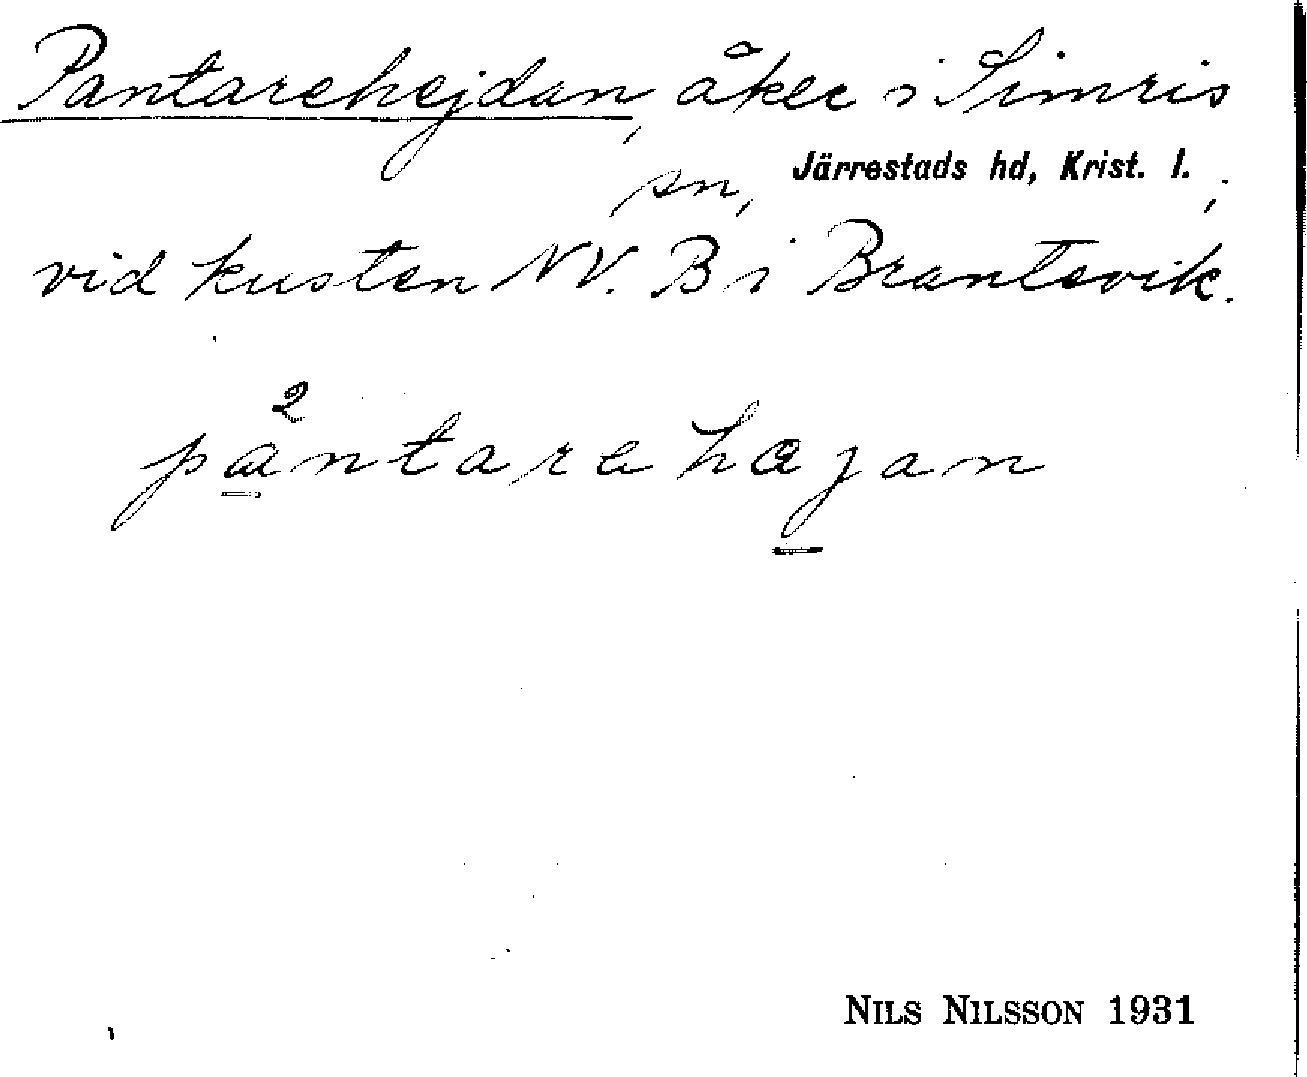 Pantarehejdan, åker i Simris
sn, Järrestads hd, Krist. l. ;
vid kusten NV. B i Brantevik.
2
pantarehæjan
NILS NILSSON 1931